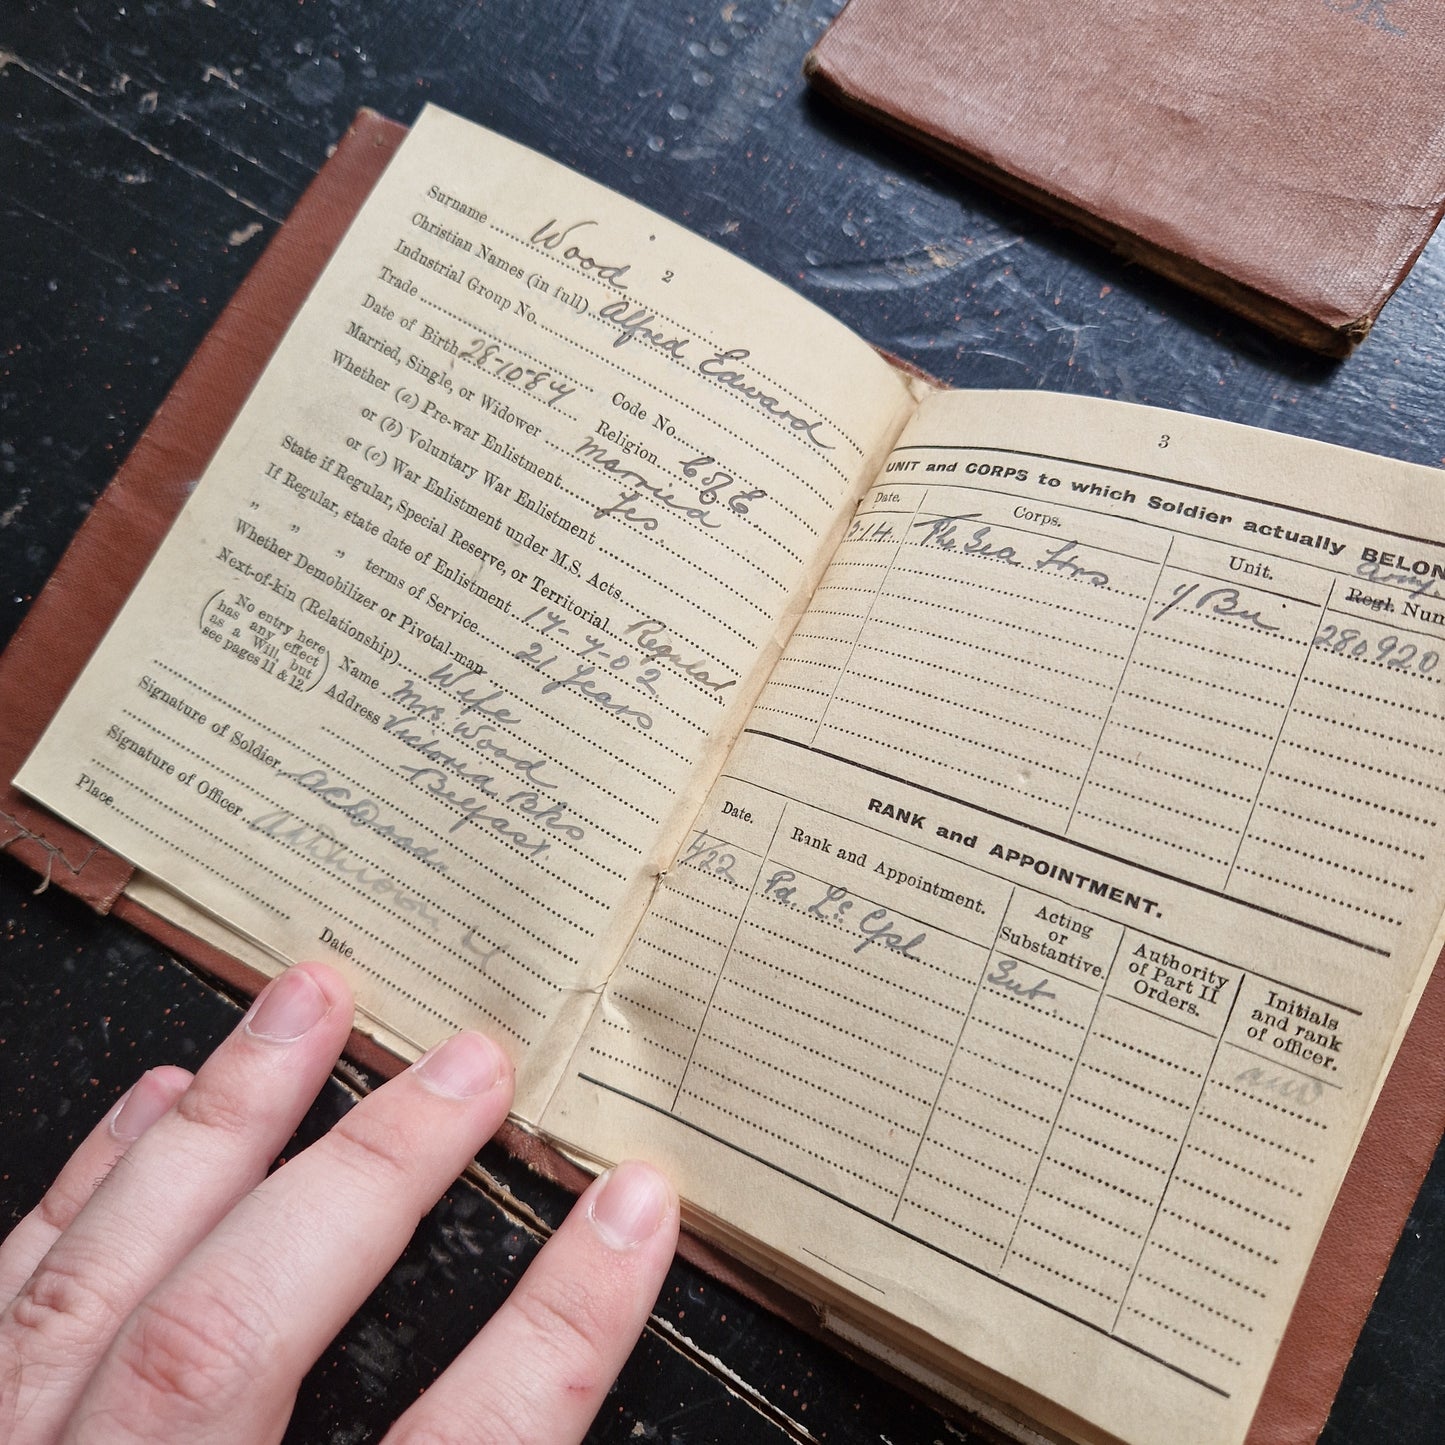 2
Surname Wood
Christian Names (in full) Alfred Edward
Industrial Group No.
Trade Code No.
Date of Birth 28-10-84 Religion C of E
Married, Single, or Widower Married
Whether (a) Pre-war Enlistment Yes
or (b) Voluntary War Enlistment
or (c) War Enlistment under M.S. Acts
State if Regular, Special Reserve, or Territorial Regular
If Regular, state date of Enlistment
„ „ „ terms of Service 21 Years
Whether Demobilizer or Pivotal-man
Next-of-kin (Relationship) Wife
(No entry here has any effect as a Will, but see pages 11 & 12.)
Name Mrs Wood
Address Victoria Bks
Belfast.
Signature of Soldier
Signature of Officer
Place Date
3
UNIT and CORPS to which Soldier actually BELON
Date. Corps. Unit. Army. Regl. Num
The Sea Hrs 280920
RANK and APPOINTMENT.
Date. Rank and Appointment. Acting or Substantive. Authority of Part II Orders. Initials and rank of officer.
4/22 Pd Lc Cpl Sub